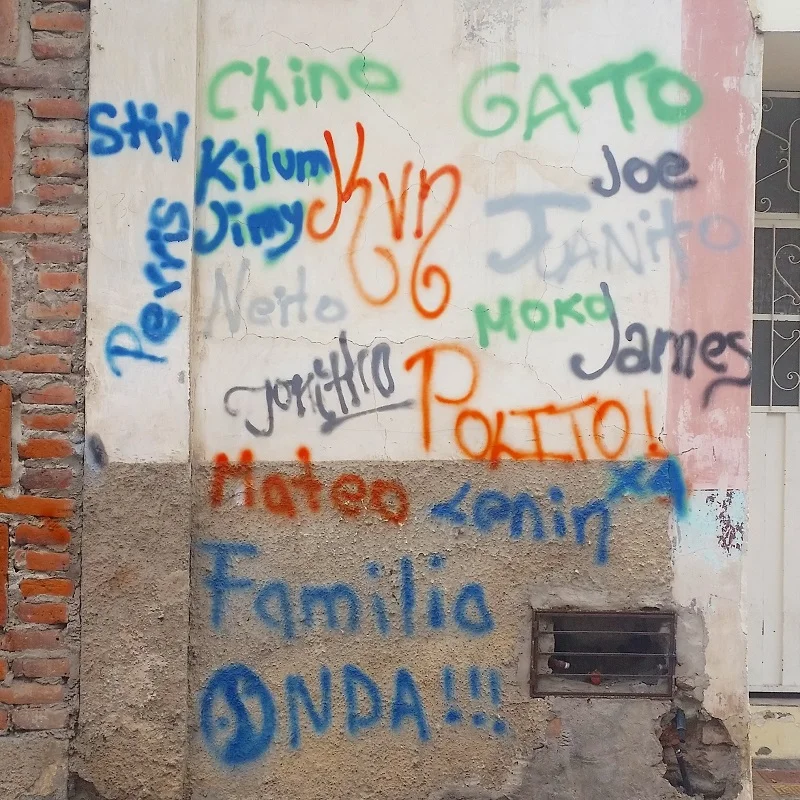 Chino GATO
Stiv Kilum Kvn Joe
Jimy JUANito
Perris
Neito MOKO James
POLITO!
Mateo Lenin X4
Familia
ONDA!!!